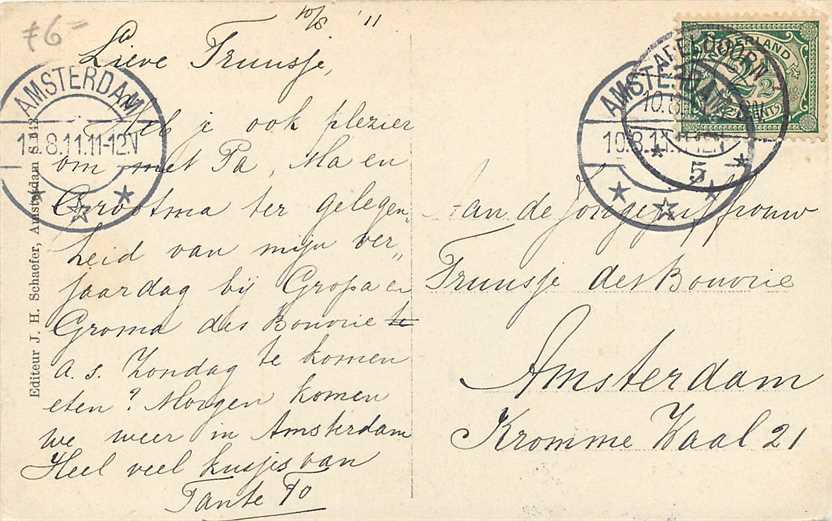 f6=
10/8 '11
Lieve Truusje,
Heb je ook plezier
om met Pa, Ma en
Grootma ter gelegen,
heid van mijn ver,,
jaardag bij Gropa en
Groma des Bouvrie te
a.s. Zondag te komen
eten? Morgen komen
we weer in Amsterdam
Heel veel kusjes van
Tante To
Editeur J. H. Schaefer, Amsterdam S 142
AMSTERDAM
8.11.11-12V
NEDERLAND
APELDOORN
10.8
5
AMSTERDAM
10.8.11.11-12V
Aan de Jongejuffrouw
Truusje des Bouvrie
Amsterdam
Kromme Waal 21